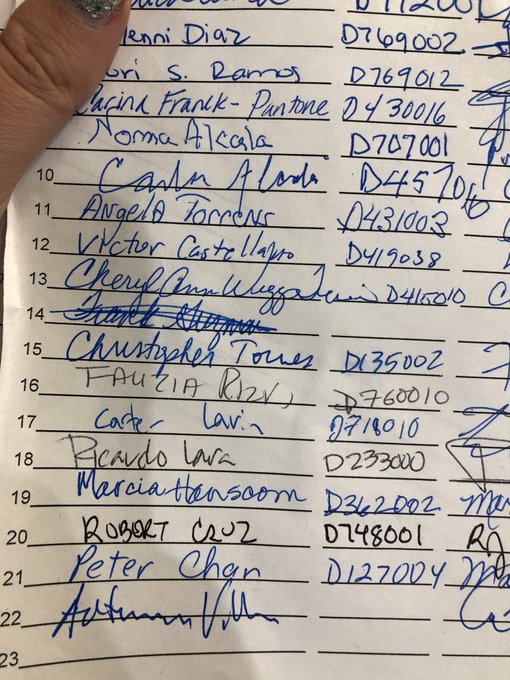 Diaz D769002
S. Ramos D769012
Carina Franck-Pantone D430016
Norma Alcala D707001
10 D45706
11 Angela Torrens D431003
12 Victor Castellano D419038
13 Cheryl Ann D415010
14
15 Christopher Torres D135002
16 FAUZIA RIZVI D760010
17 Carter Lavin D718010
18 Ricardo Lara D233000
19 Marcia Hanscom D362002 Mar
20 ROBERT CRUZ D748001
21 Peter Chan D127004
22 Autumn
23